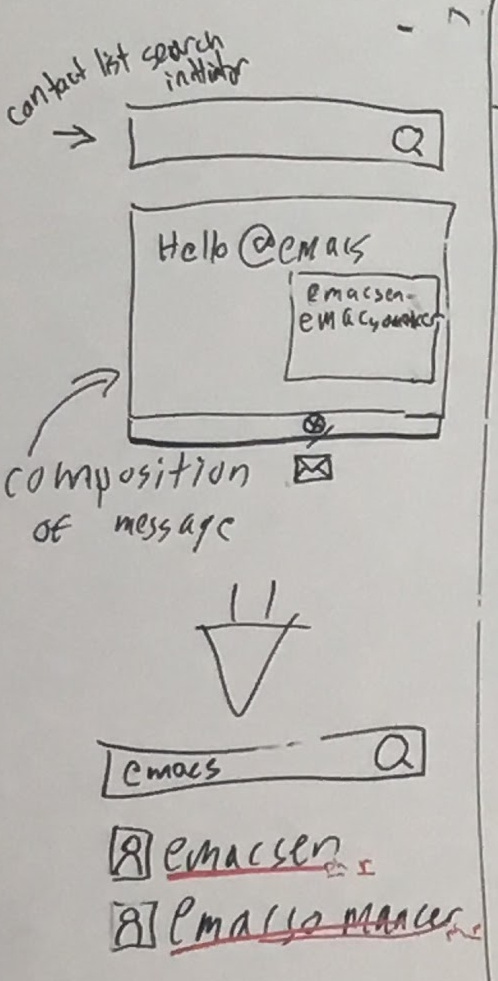 contact list search
initiator
Hello @emacs
emacsen
emacsomancer
composition
of message
emacs
emacsen
emacsomancer